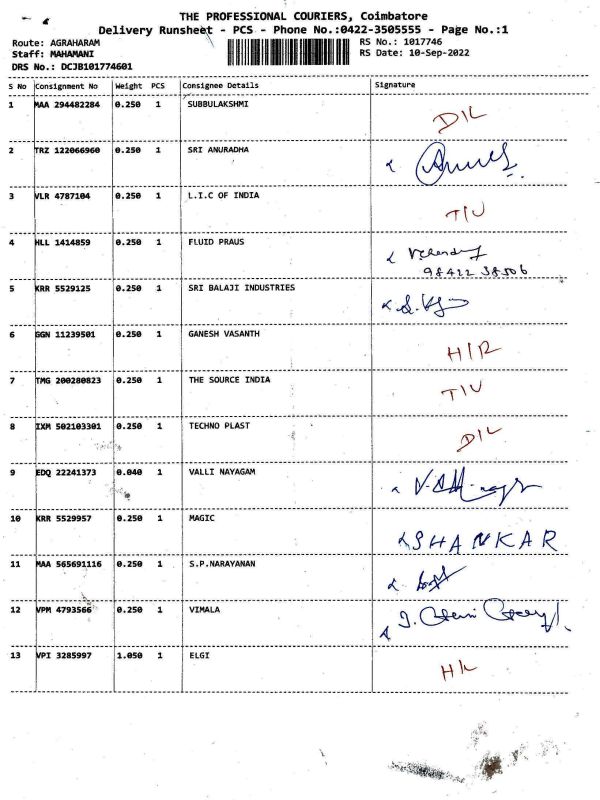 THE PROFESSIONAL COURIERS, Coimbatore
Delivery Runsheet - PCS - Phone No.:0422-3505555 - Page No.:1
Route: AGRAHARAM RS No.: 1017746
Staff: MAHAMANI RS Date: 10-Sep-2022
DRS No.: DCJB101774601
S No Consignment No Weight PCS Consignee Details Signature
1 MAA 294482284 0.250 1 SUBBULAKSHMI D/L
2 TRZ 122066960 0.250 1 SRI ANURADHA
3 VLR 4787104 0.250 1 L.I.C OF INDIA T/U
4 HLL 1414859 0.250 1 FLUID PRAUS
98422 38506
5 KRR 5529125 0.250 1 SRI BALAJI INDUSTRIES
6 GGN 11239501 0.250 1 GANESH VASANTH H/R
7 TMG 200280823 0.250 1 THE SOURCE INDIA T/U
8 IXM 502103301 0.250 1 TECHNO PLAST D/L
9 EDQ 22241373 0.040 1 VALLI NAYAGAM
10 KRR 5529957 0.250 1 MAGIC SHANKAR
11 MAA 565691116 0.250 1 S.P.NARAYANAN
12 VPM 4793566 0.250 1 VIMALA
13 VPI 3285997 1.050 1 ELGI